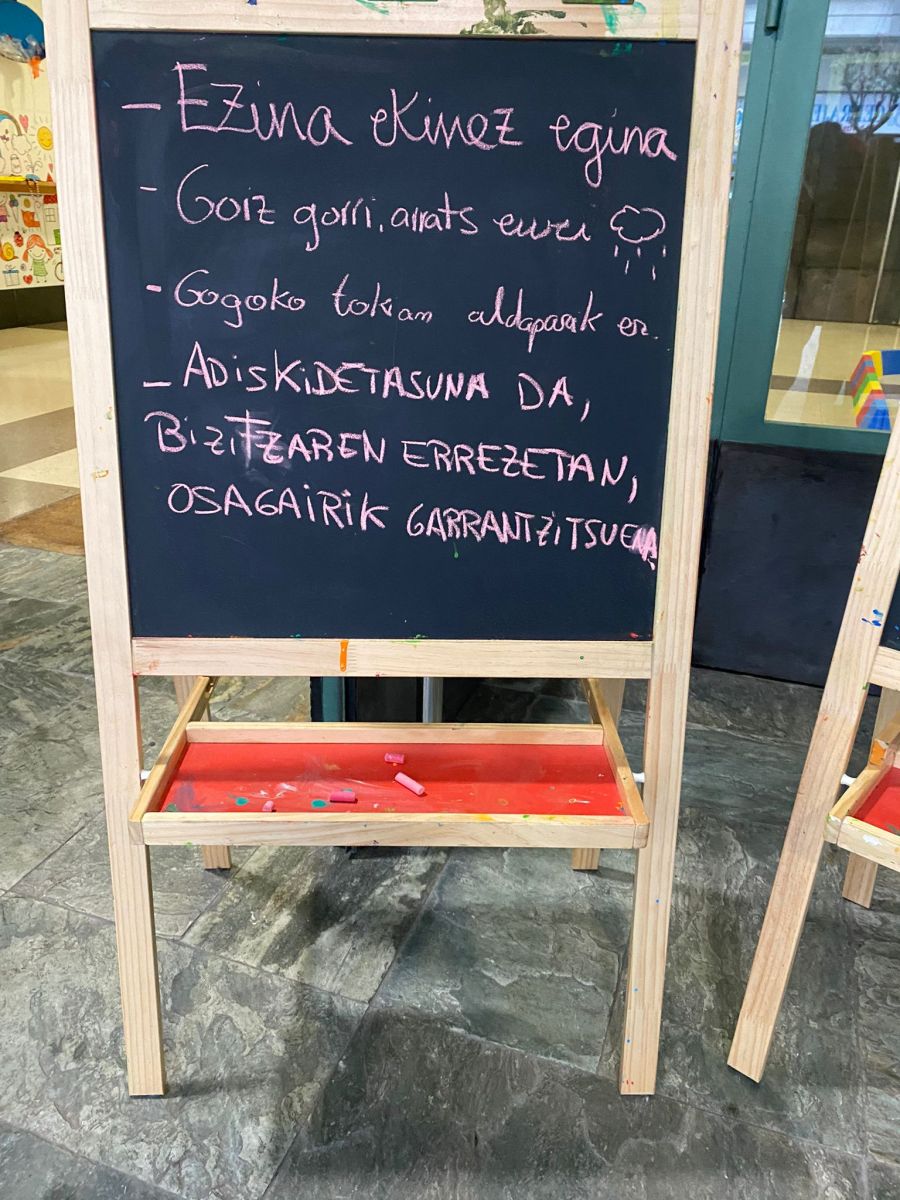 - Ezina ekinez egina
- Goiz gorri, arrats euri
- Gogoko tokian aldaparik ez.
- ADISKIDETASUNA DA,
BIZITZAREN ERREZETAN,
OSAGAIRIK GARRANTZITSUENA